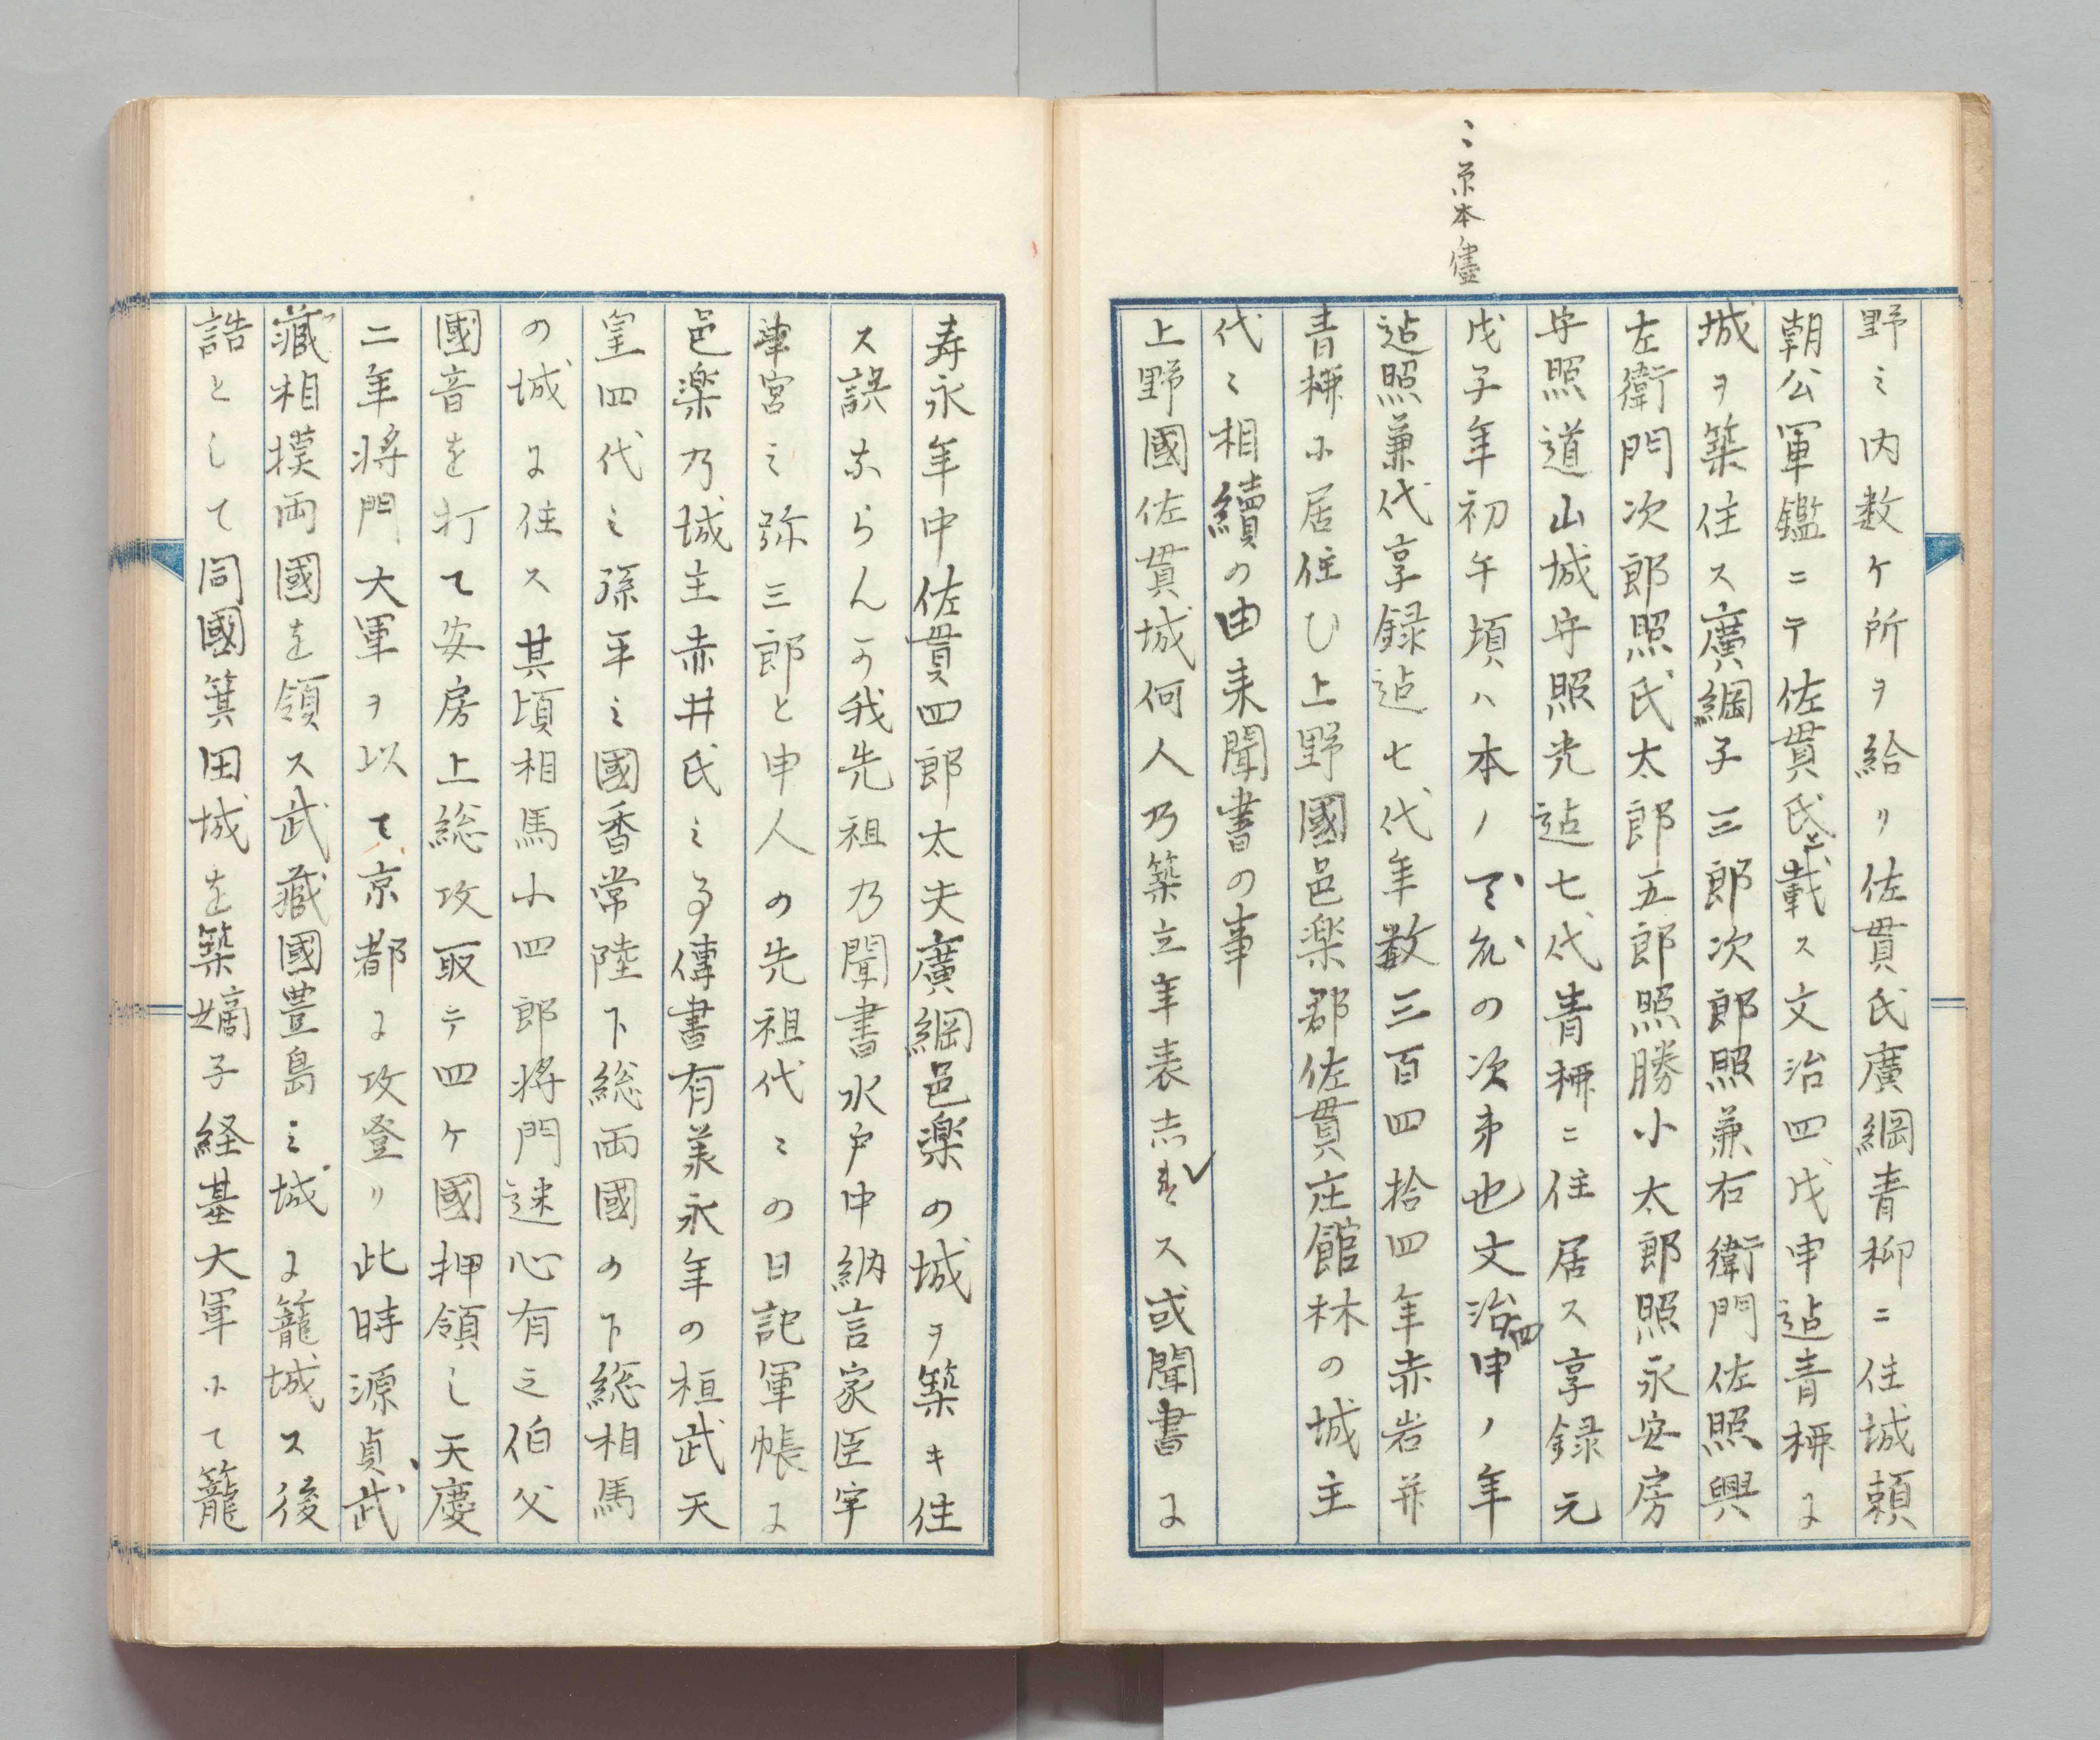 ミ原本儘
野ミ内数ケ所ヲ給リ佐貫氏廣綱青柳ニ住城頼
朝公軍鑑ニテ佐貫氏ト載ス文治四戊申迠青柳に
城ヲ築住ス廣綱子三郎次郎照兼右衛門佐照興
左衛門次郎照氏太郎五郎照勝小太郎照永安房
守照道山城守照光迠七代青柳ニ住居ス享録元
戊子年初午頃ハ本ノの次第也文治四申ノ年
迠照兼代享録迠七代年数三百四拾四年赤岩并
青柳小居住ひ上野國邑楽郡佐貫庄館林の城主
代ミ相續の由来聞書の事
上野國佐貫城何人乃築立年表志れス或聞書に
寿永年中佐貫四郎太夫廣綱邑楽の城ヲ築キ住
ス誤あらんか我先祖乃聞書水戸中納言家臣宇
津宮ミ弥三郎と申人の先祖代ミの日記軍帳に
邑楽乃城主赤井氏ミ事傳書有羨永年の桓武天
皇四代ミ孫平ミ國香常陸下総両國の下総相馬
の城に住ス其頃相馬小四郎将門迷心有之伯父
國音を打て安房上総攻取テ四ケ國押領し天慶
二年将門大軍ヲ以て京都に攻登リ此時源貞武
藏相撲両國を領ス武藏國豊島ミ城に籠城ス後
誥として同國箕田城を築嫡子経基大軍小て籠